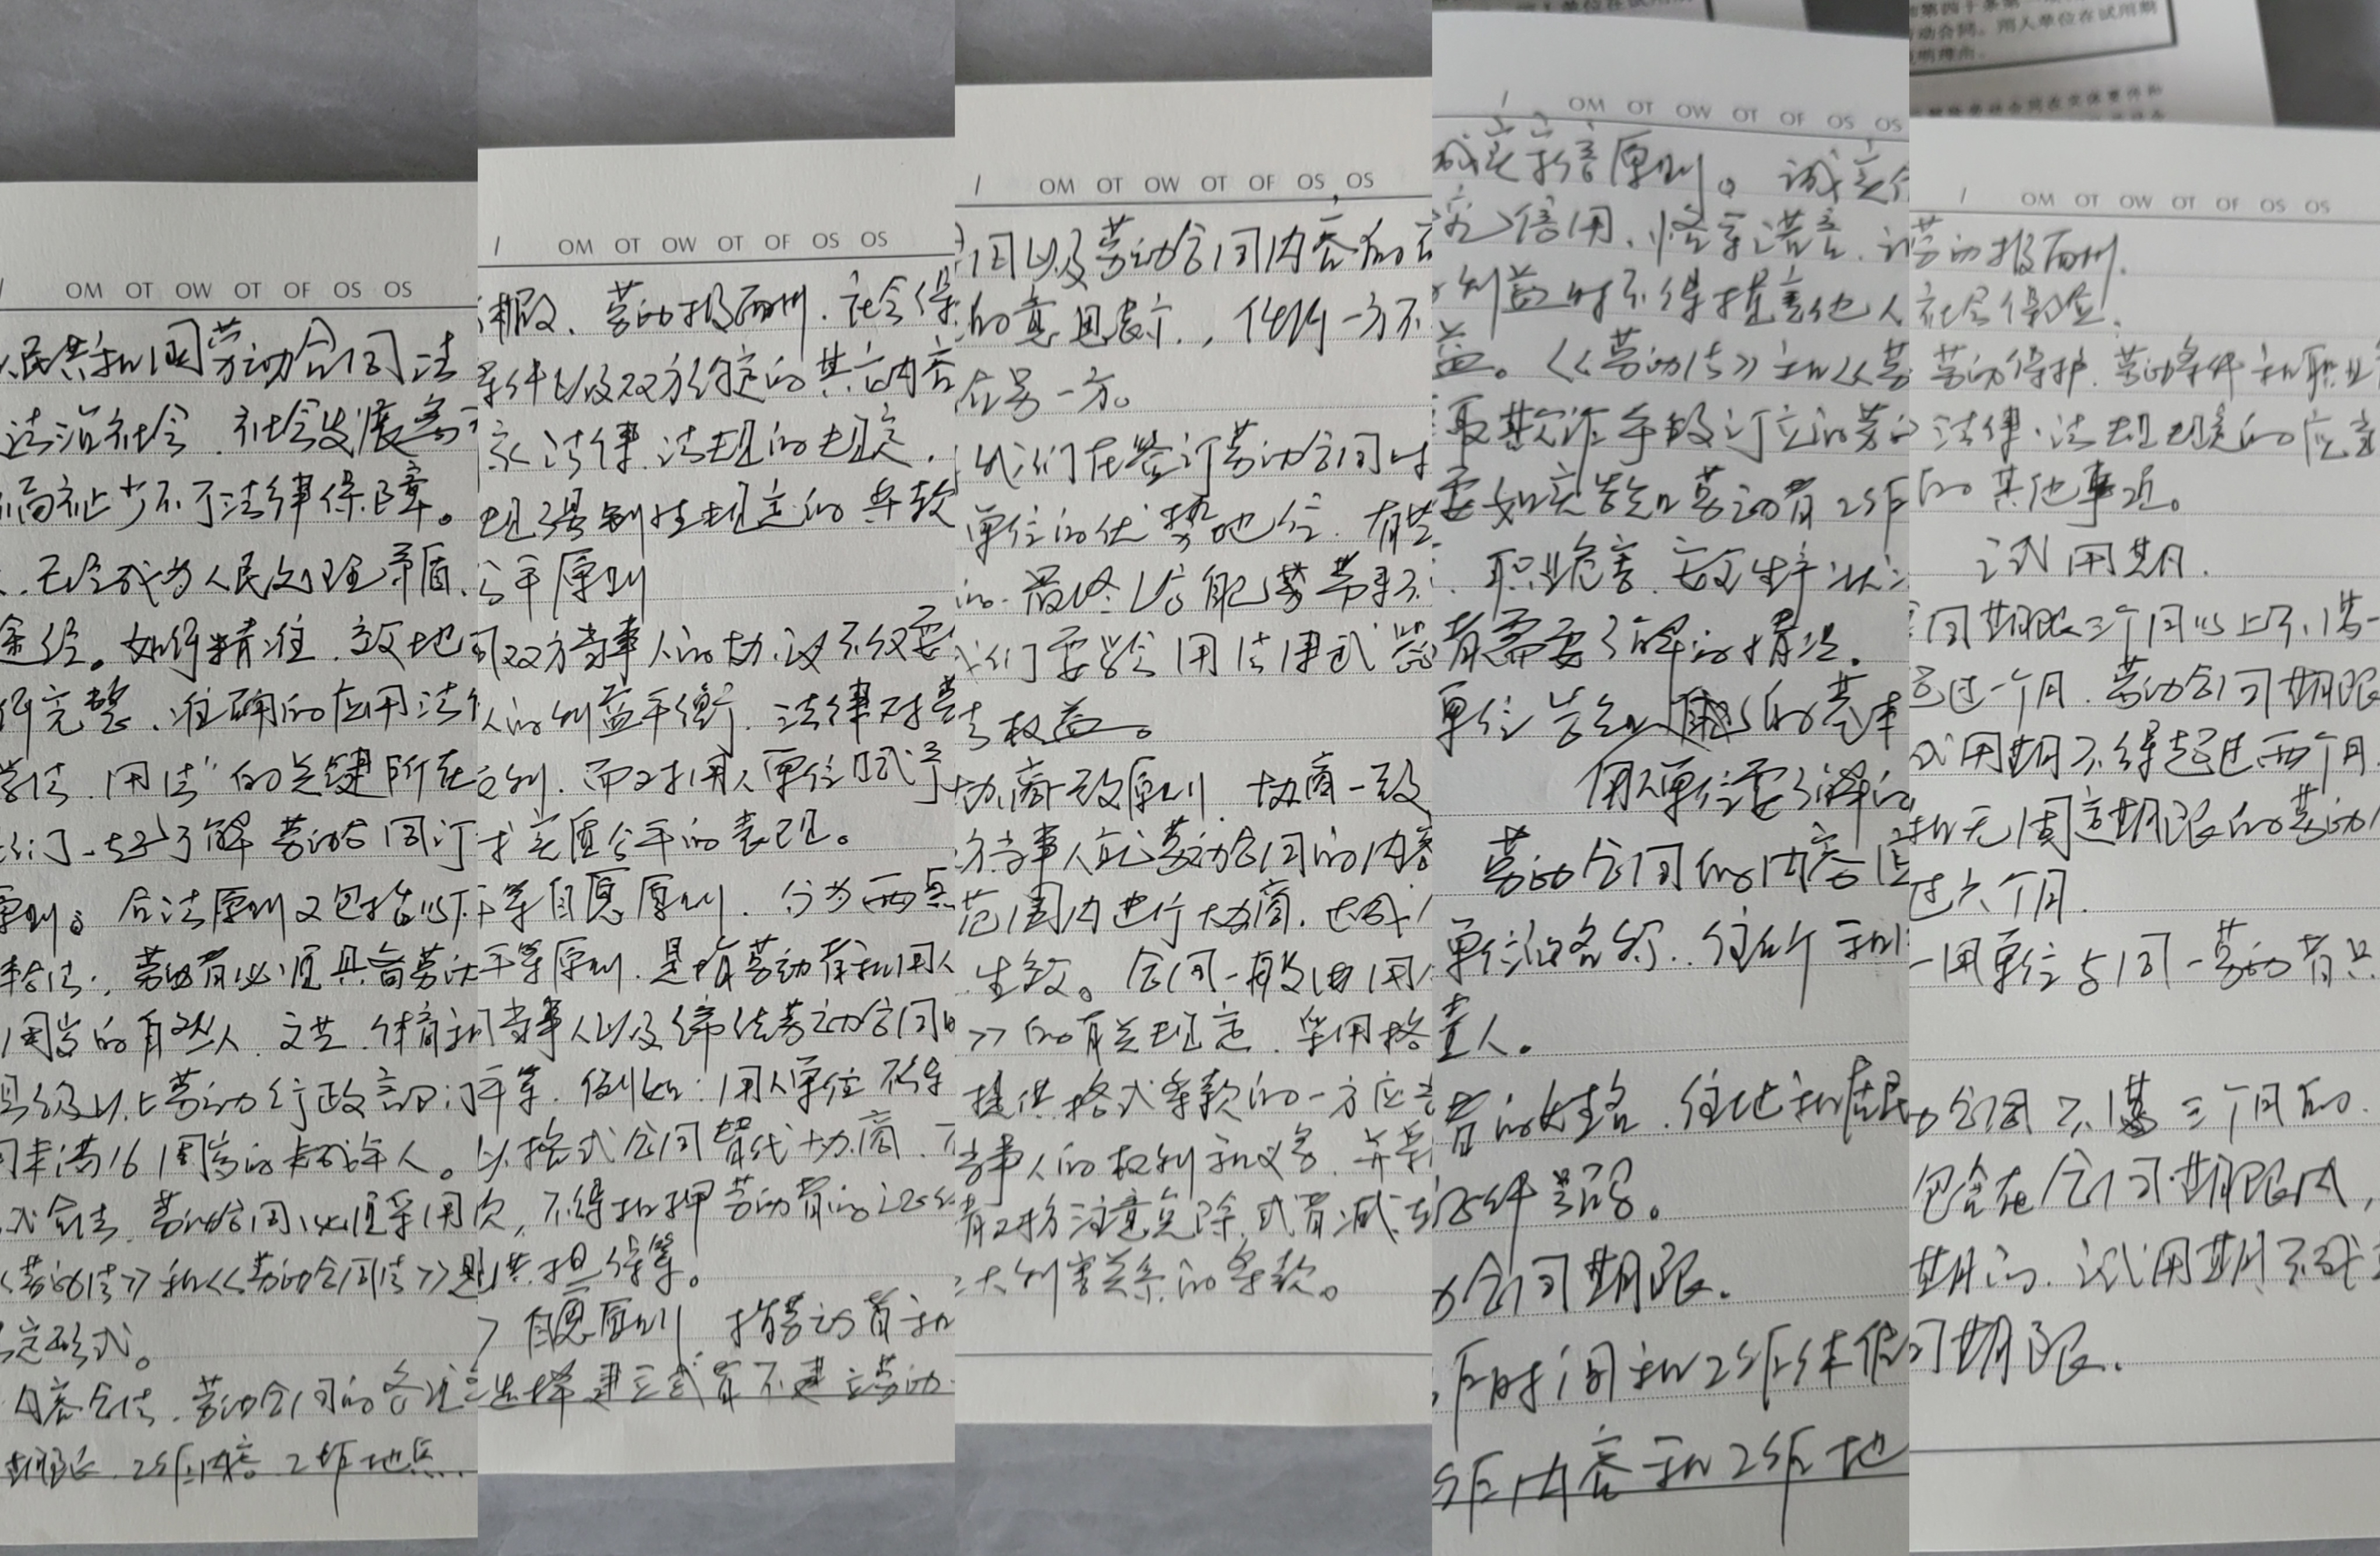 OM OT OW OT OF OS OS
人民共和国劳动合同法
法治社会、社会发展离
福祉少不了法律保障。
、已经成为人民处理矛盾、
途径。如何精准、高效地
何完整、准确的应用法律
学法、用法"的关键所在
我们一起了解劳动合同订
原则。合法原则又包括以下
体合法,劳动者必须具备劳动
周岁的自然人、文艺、体育和
县级以上劳动行政部门
用未满16周岁的未成年人。
式合法、劳动合同必须采用
《劳动法》和《劳动合同法》
定形式。
内容合法、劳动合同的各项
期限、工作内容、工作地点、
1 OM OT OW OT OF OS OS
休假、劳动报酬、社会保
条件以及双方约定的其它内容
家法律、法规的规定,
规强制性规定的条款
公平原则
双方当事人的协议不仅要
人的利益平衡、法律对劳
之利、而对用人单位赋予
才实质公平的表现。
平等自愿原则、分为两点
平等原则、是指劳动者和用人
当事人以及缔结劳动合同
平等、例如:用人单位不得
以格式合同替代协商、
次,不得扣押劳动者的证件
提供担保等。
自愿原则 指劳动者和
选择建立或者不建立劳动
1 OM OT OW OT OF OS OS
同以及劳动合同内容的
的意思表示,任何一方不
在另一方。
我们在签订劳动合同时
单位的优势地位、有些
的、最终以
我们要学会用法律武器
法权益。
协商一致原则、协商一致
方当事人就劳动合同的内容
范围内进行协商,达成
生效。合同一般由用
》的有关规定、采用格
提供格式条款的一方应
当事人的权利和义务、并
者对方注意免除或者减
大利害关系的条款。
1 OM OT OW OT OF OS OS
诚实守信原则。诚实
究信用、恪守诺言、
利益时不得损害他人
益。《劳动法》和《劳
取欺诈手段订立的劳
要如实告知劳动者工作
、职业危害、安全生产状况
者需要了解的情况。
单位告知的基本
用人单位要了解
劳动合同的内容
单位的名称、住所和
责人。
者的姓名、住址和居民
证件号码。
合同期限。
作时间和工作休假
工作内容和工作地
第四十条第一
动合同。用人单位在试用期
明理由。
1 OM OT OW OT OF OS OS
劳动报酬、
社会保险、
劳动保护、劳动条件和职业
法律、法规规定的应
的其他事项。
试用期、
合同期限三个月以上不满一
超过一个月、劳动合同期限
试用期不得超过两个月、
和无固定期限的劳动
过六个月、
一用单位与同一劳动者只
合同不满三个月的、
包含在合同期限内,
期的、试用期不成
同期限、